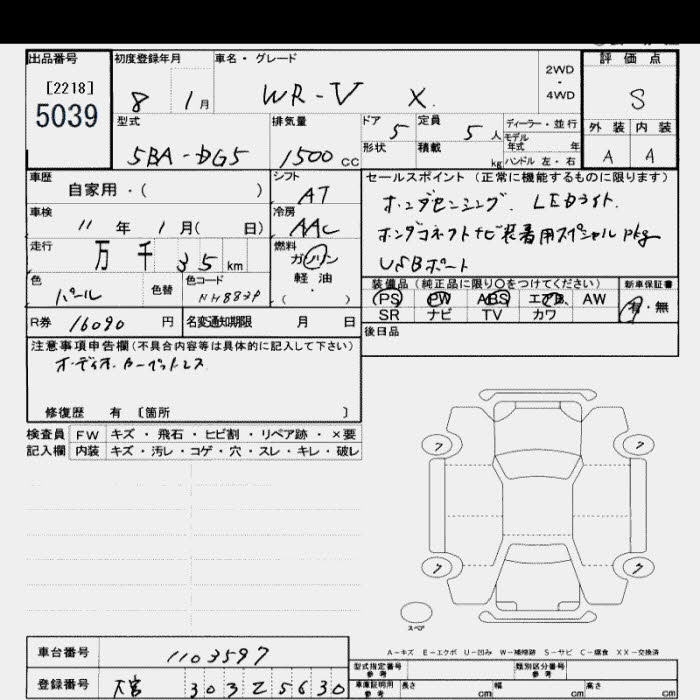 出品番号
[2218]
5039
初度登録年月
8 1月
車名・グレード
WR-V X
2WD
・
4WD
評価点
S
外装 内装
A A
型式
5BA-DG5
排気量
1500 cc
ドア 5
定員 5 人
形状
積載 kg
ディーラー・並行
モデル
年式 年
ハンドル 左・右
車歴
自家用・( )
シフト
AT
車検
11 年 1 月( 日)
冷房
AAC
走行
万 千 35 km
燃料
ガソリン
軽油
・
( )
色
パール
色替
色コード
NH883P
R券 16090 円
名変通知期限 月 日
セールスポイント (正常に機能するものに限ります)
ホンダセンシング. LEDライト.
ホンダコネクトナビ装着用スペシャルpkg
USBポート
装備品 (純正品に限り○をつけてください)
PS PW ABS エアB AW
SR ナビ TV カワ
新車保証書
有・無
後日品
注意事項申告欄 (不具合内容等は具体的に記入して下さい)
オーディオ.カーペットレス
修復歴 有 〔箇所 〕
検査員 FW キズ・飛石・ヒビ割・リペア跡・×要
記入欄 内装 キズ・汚レ・コゲ・穴・スレ・キレ・破レ
7 7
7 7
スペア
A－キズ E－エクボ U－凹み W－補修跡 S－サビ C－腐食 XX－交換済
車台番号 1103597
登録番号 大宮 303 Z 5630
型式指定番号
参考
類別区分番号
参考
車庫証明用
参考
長さ cm 幅 cm 高さ cm